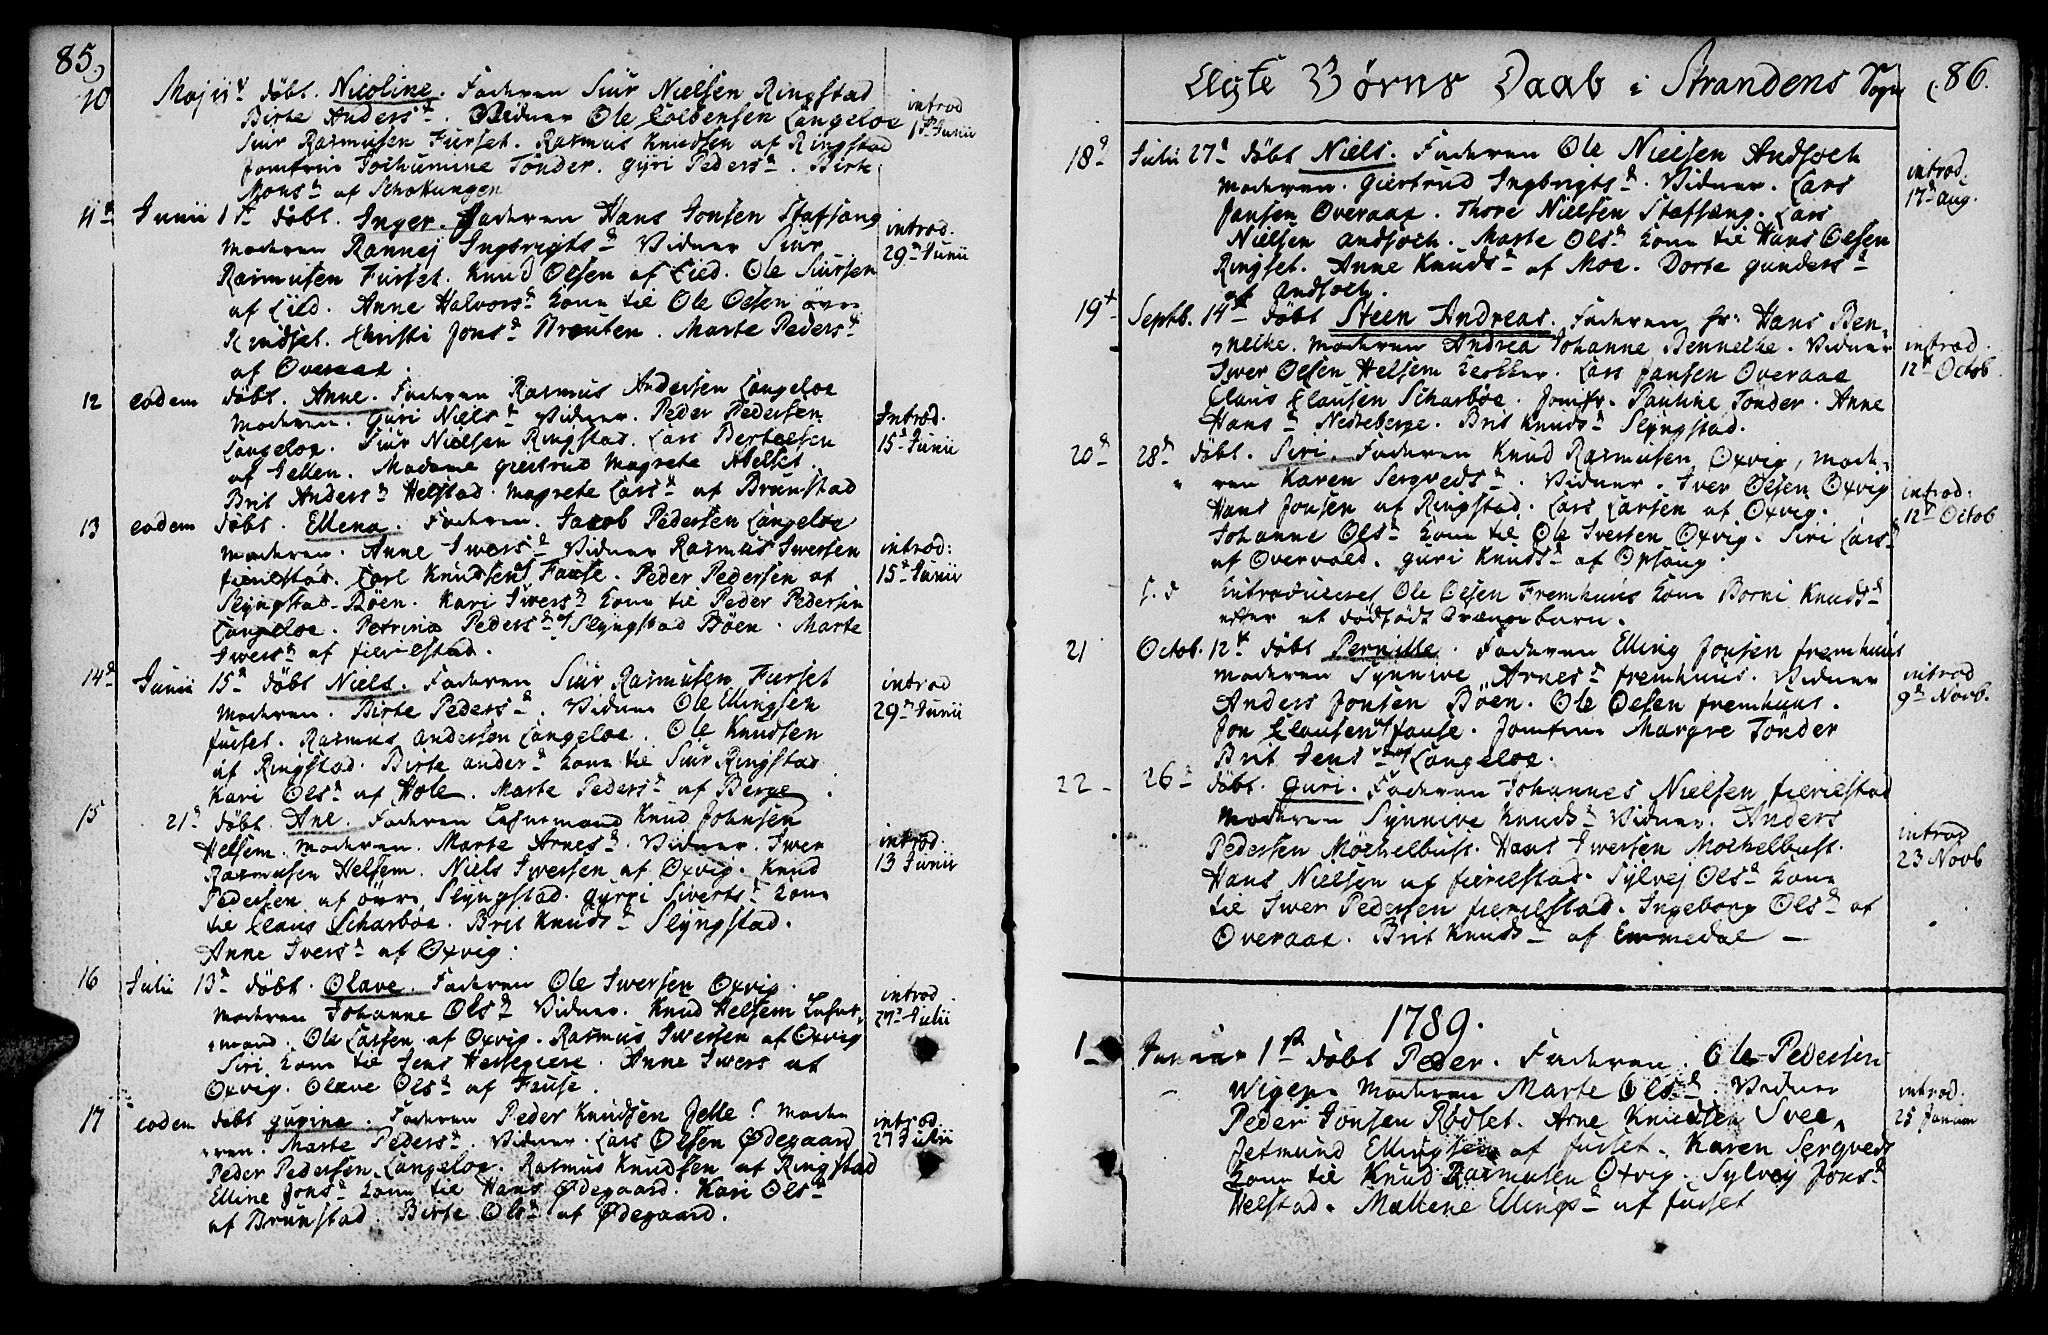 85
10 Maji 1ᵗ döbt. Nicoline. Faderen Siur Nielsen Ringstad introd
Birte Anders d. Vidner Ole Colbensen Langeloe 1ᵗ Junii
Siur Rasmusen Furset. Rasmus Knudsen af Ringstad
Jomfrue Jochumine Tönder. Gyri Peders d. Birte
Mons d af Schotungen
11 Junii 1ᵗ döbt. Inger. Faderen Hans Jonsen Stafsang introd.
moderen Rannej Ingbrigts d Vidner Siur 29 Junii
Rasmusen Furset. Knud Olsen af Lied. Ole Siursen
af Lied. Anne Halvors d kone til Ole Olsen övre
Rindset. Christi Jons d Brauten. Marte Peders d
af Overaae.
12 eodem döbt. Anne. Faderen Rasmus Andersen Langeloe Introd.
moderen. Guri Niels d Vidner. Peder Pedersen 15 Junii
Langeloe. Siur Nielsen Ringstad. Lars Bertelsen
af Jellen. Madame Giertrud Magrete Abelset.
Brit Anders d Helstad. Magrete Lars d af Brunstad
13 eodem döbt. Ellena. Faderen. Jacob Pedersen Langeloe introd:
moderen. Anne Iwers d Vidner Rasmus Iwersen 15 Junii
fierilstad. Carl Knudsen Fause. Peder Pedersen af
Slyngstad Böen. Kari Iwers d kone til Peder Pedersen
Langeloe. Petrina Peders d af Slyngstad Böen. Marte
Iwers d af fierilstad.
14 Junii 15 döbt Niels. Faderen Siur Rasmusen Furset introd
moderen. Birte Peders d. Vidner Ole Ellingsen 29 Junii
furset. Rasmus Andersen Langeloe. Ole Knudsen
af Ringstad. Birte Anders d kone til Siur Ringstad
Kari Ols d af Hole. Marte Peders d af Berge.
15 21 döbt. Ane. Faderen Lehnsmand Knud Johnsen introd
Helsem. moderen. Marte Arnes d. Vidner. Iwer 13 Junii
Rasmusen Helsem. Niels Iwersen af Oxvig. Knud
Pedersen af övre Slyngstad. Gyri Siverts d kone
til Claus Scharboe. Brit Knuds d Slyngstad.
Anne Ivers d af Oxvig.
16 Julii 13 döbt. Olave. Faderen Ole Iwersen Oxvig. introd
moderen Johanne Ols d Vidner. Knud Helsem Lehns- 27 Julii
mand. Ole Larsen af Oxvig. Rasmus Iwersen af Oxvig
Siri kone til Jens Hessegiere. Anne Iwers af
Oxvig. Olave Ols d af Fause.
17 eodem döbt Gurine. Faderen Peder Knudsen Jelle. Mode- introd
ren. Marte Peders d. Vidner. Lars Olsen Ødegaard 27 Julii
Peder Pedersen Langeloe. Rasmus Knudsen af Ringstad
Elline Jons d kone til Hans Ødegaard. Kari Ols d
af Brunstad. Birte Ols d af Ødegaard.
Ægte Börns Daab i Strandens Sogn 86.
18 Julii 27 döbt Niels. Faderen Ole Nielsen Andsoch introd.
moderen. Giertrud Ingbrigts d. Vidner. Lars 17 Aug.
Jansen Overaae. Thore Nielsen Stafsæng. Lars
Nielsen Andsoch. Marte Ols d kone til Hans Olsen
Ringset. Anne Knuds d af Moe. Dorte Gunders d
af Andsoch.
19 Septb. 14 döbt Steen Andreas. Faderen Hr. Hans Ben- introd.
nelke. moderen Andrea Johanne Bennelke. Vidner 12 Octob
Iwer Olsen Helsem Klokker. Lars Jansen Overaae
Claus Clausen Scharboe. Jomfr. Pauline Tönder. Anne
Hans d Nedreberge. Brit Knuds d Slyngstad.
20 28 döbt. Siri. Faderen Knud Rasmusen Oxvig, mode-
ren Karen Sergveds d. Vidner. Iver Olsen Oxvig introd.
Hans Jonsen af Ringstad. Lars Larsen af Oxvig. 12 Octob
Johanne Ols d kone til Ole Iversen Oxvig. Siri Lars d
af Overvold. Guri Knuds d af Opsang.
s. d Introduceret Ole Olsen Fremhuus kone Borni Knuds d
efter et dödfödt Drængebarn.
21 Octob. 12 döbt Pernille. Faderen Elling Jonsen fremhuus introd
moderen Synnive Arnes d fremhuus. Vidner 9 Novb.
Anders Jonsen Böen. Ole Olsen fremhuus.
Jon Clausen af Fause. Jomfrue Margre Tönder
Brit Jens d af Langeloe.
22 26 döbt. Guri. Faderen Johannes Nielsen fierilstad
Moderen Synnive Knuds d Vidner. Anders introd
Pedersen Mochelbust. Hans Iwersen Mochelbust. 23 Novb
Hans Nielsen af fierilstad. Sylvej Ols d kone
til Iwer Pedersen fierilstad. Ingeborg Ols d af
Overaae. Brit Knuds d af Emmedal
1789.
1 Januar 1 döbt Peder. Faderen. Ole Pedersen
Wigen. Moderen Marte Ols d Vidner introd.
Peder Jonsen Rödset. Arne Knudsen Svee. 25 Januar
Jetmund Ellingsen af furset. Karen Sergveds
kone til Knud Rasmusen Oxvig. Sylvej Jons d
Helstad. Mallene Ellings d af furset